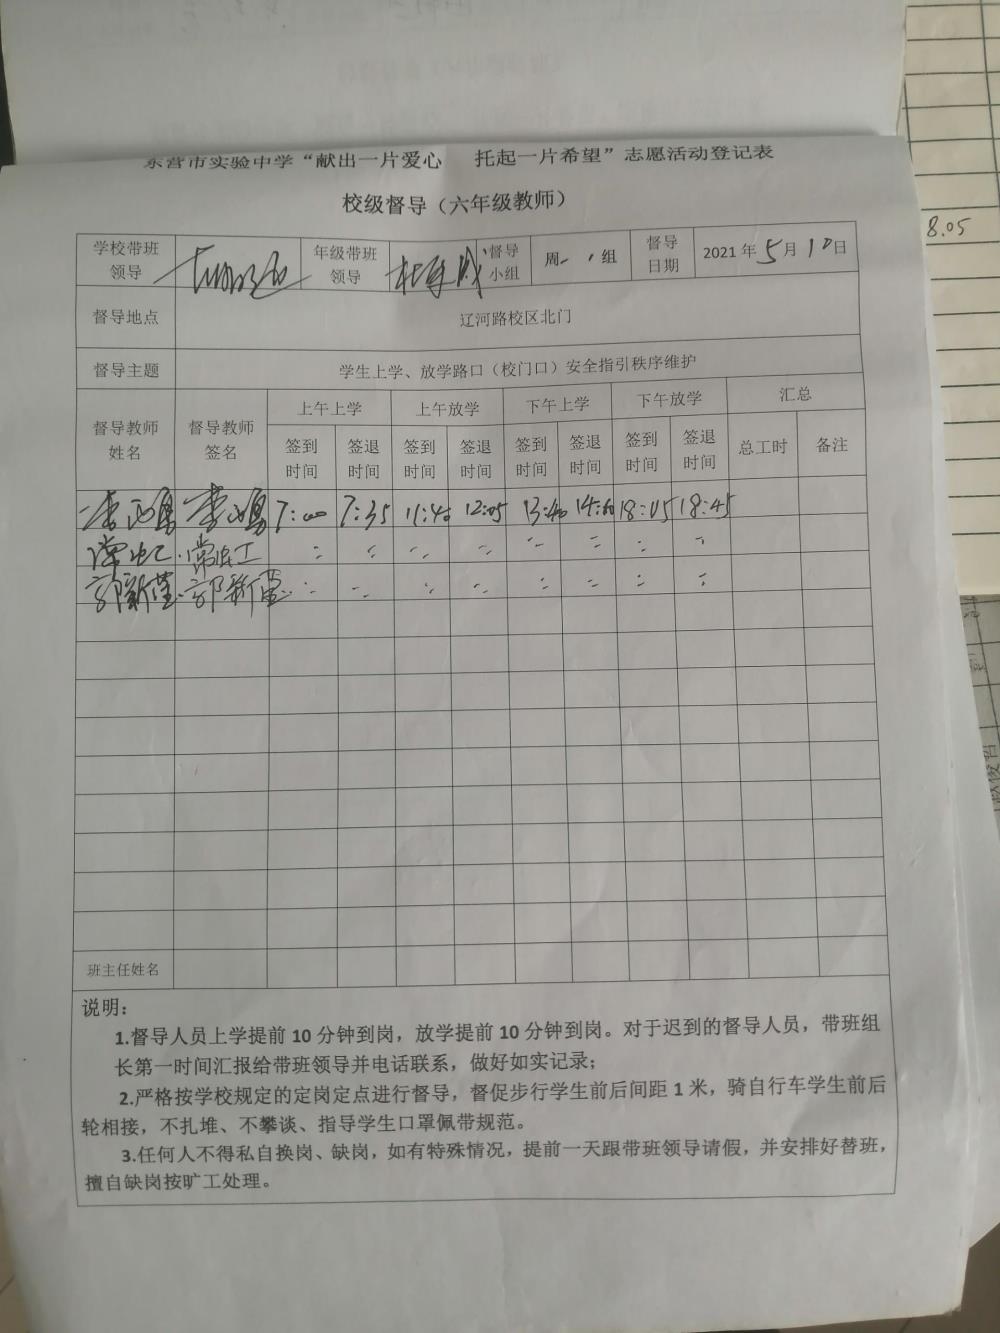 东营市实验中学“献出一片爱心 托起一片希望”志愿活动登记表
校级督导（六年级教师）
8.05
学校带班领导 年级带班领导 督导小组 周一 组 督导日期 2021年5月10日
督导地点 辽河路校区北门
督导主题 学生上学、放学路口（校门口）安全指引秩序维护
督导教师姓名 督导教师签名 上午上学 上午放学 下午上学 下午放学 汇总
签到时间 签退时间 签到时间 签退时间 签到时间 签退时间 签到时间 签退时间 总工时 备注
7:00 7:35 11:40 12:05 13:40 14:10 18:15 18:45
郭新
班主任姓名
说明：
1.督导人员上学提前10分钟到岗，放学提前10分钟到岗。对于迟到的督导人员，带班组
长第一时间汇报给带班领导并电话联系，做好如实记录；
2.严格按学校规定的定岗定点进行督导，督促步行学生前后间距1米，骑自行车学生前后
轮相接，不扎堆、不攀谈、指导学生口罩佩带规范。
3.任何人不得私自换岗、缺岗，如有特殊情况，提前一天跟带班领导请假，并安排好替班，
擅自缺岗按旷工处理。